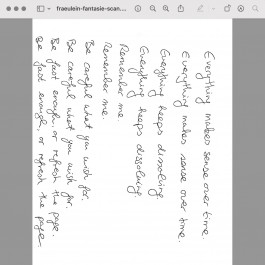 fraeulein-fantasie-scan....
Everything makes sense over time.
Everything makes sense over time.
Everything keeps dissolving
Everything keeps dissolving.
Remember me.
Remember me.
Be careful what you wish for.
Be careful what you wish for.
Be fast enough, or refresh the page.
Be fast enough, or refresh the page.